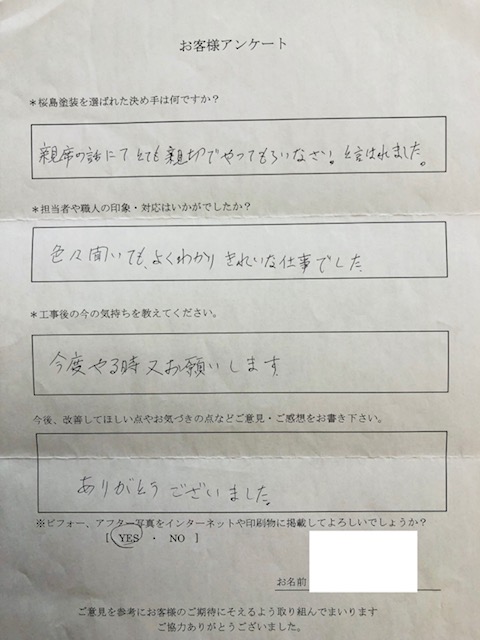 お客様アンケート
＊桜島塗装を選ばれた決め手は何ですか？
親席の話にてとても親切でやってもらいなさい！と言はれました。
＊担当者や職人の印象・対応はいかがでしたか？
色々聞いても、よくわかりきれいな仕事でした
＊工事後の今の気持ちを教えてください。
今度やる時又お願いします
今後、改善してほしい点やお気づきの点などご意見・ご感想をお書き下さい。
ありがとうございました。
※ビフォー、アフター写真をインターネットや印刷物に掲載してよろしいでしょうか？
［ YES ・ NO ］
お名前
ご意見を参考にお客様のご期待にそえるよう取り組んでまいります
ご協力ありがとうございました。